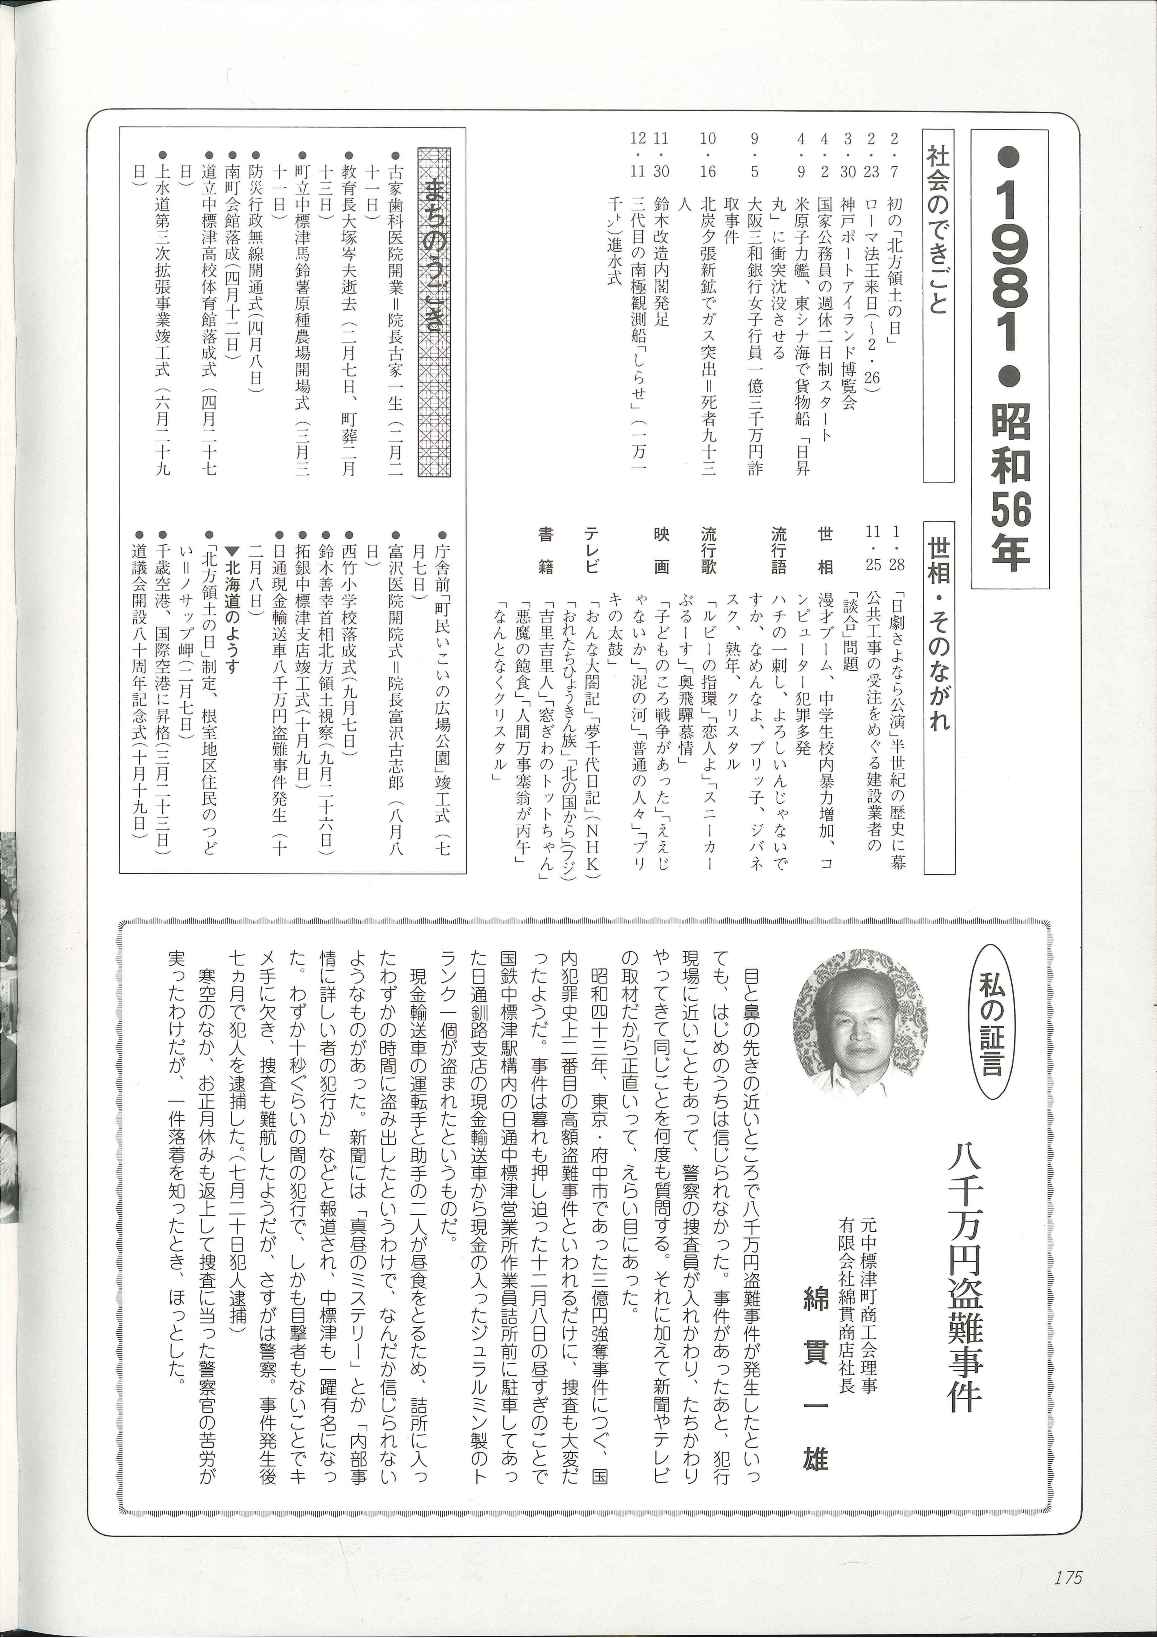 ●1981●昭和56年
社会のできごと
2・7 初の「北方領土の日」
2・23 ローマ法王来日(～2・26)
3・30 神戸ポートアイランド博覧会
4・2 国家公務員の週休二日制スタート
4・9 米原子力艦、東シナ海で貨物船「日昇
丸」に衝突沈没させる
9・5 大阪三和銀行女子行員一億三千万円詐
取事件
10・16 北炭夕張新鉱でガス突出＝死者九十三
人
11・30 鈴木改造内閣発足
12・11 三代目の南極観測船「しらせ」(一万一
千㌧)進水式
世相・そのながれ
1・28 「日劇さよなら公演」半世紀の歴史に幕
11・25 公共工事の受注をめぐる建設業者の
「談合」問題
世相 漫才ブーム、中学生校内暴力増加、コ
ンピューター犯罪多発
流行語 ハチの一刺し、よろしいんじゃないで
すか、なめんなよ、ブリッ子、ジバネ
スク、熟年、クリスタル
流行歌 「ルビーの指環」「恋人よ」「スニーカー
ぶるーす」「奥飛騨慕情」
映画 「子どものころ戦争があった」「ええじ
ゃないか」「泥の河」「普通の人々」「ブリ
キの太鼓」
テレビ 「おんな太閤記」「夢千代日記」(NHK)
「おれたちひょうきん族」「北の国から」(フジ)
書籍 「吉里吉里人」「窓ぎわのトットちゃん」
「悪魔の飽食」「人間万事塞翁が丙午」
「なんとなくクリスタル」
まちのうごき
●古家歯科医院開業＝院長古家一生(二月二
十一日)
●教育長大塚岑夫逝去(二月七日、町葬二月
十三日)
●町立中標津馬鈴薯原種農場開場式(三月三
十一日)
●防災行政無線開通式(四月八日)
●南町会館落成(四月十二日)
●道立中標津高校体育館落成式(四月二十七
日)
●上水道第三次拡張事業竣工式(六月二十九
日)
●庁舎前「町民いこいの広場公園」竣工式(七
月七日)
●富沢医院開院式＝院長富沢古志郎(八月八
日)
●西竹小学校落成式(九月七日)
●鈴木善幸首相北方領土視察(九月二十六日)
●拓銀中標津支店竣工式(十月九日)
●日通現金輸送車八千万円盗難事件発生(十
二月八日)
▼北海道のようす
●「北方領土の日」制定、根室地区住民のつど
い＝ノサップ岬(二月七日)
●千歳空港、国際空港に昇格(三月二十三日)
●道議会開設八十周年記念式(十月十九日)
私の証言
八千万円盗難事件
元中標津町商工会理事
有限会社綿貫商店社長
綿貫一雄
目と鼻の先きの近いところで八千万円盗難事件が発生したといっ
ても、はじめのうちは信じられなかった。事件があったあと、犯行
現場に近いこともあって、警察の捜査員が入れかわり、たちかわり
やってきて同じことを何度も質問する。それに加えて新聞やテレビ
の取材だから正直いって、えらい目にあった。
昭和四十三年、東京・府中市であった三億円強奪事件につぐ、国
内犯罪史上二番目の高額盗難事件といわれるだけに、捜査も大変だ
ったようだ。事件は暮れも押し迫った十二月八日の昼すぎのことで
国鉄中標津駅構内の日通中標津営業所作業員詰所前に駐車してあっ
た日通釧路支店の現金輸送車から現金の入ったジュラルミン製のト
ランク一個が盗まれたというものだ。
現金輸送車の運転手と助手の二人が昼食をとるため、詰所に入っ
たわずかの時間に盗み出したというわけで、なんだか信じられない
ようなものがあった。新聞には「真昼のミステリー」とか「内部事
情に詳しい者の犯行か」などと報道され、中標津も一躍有名になっ
た。わずか十秒ぐらいの間の犯行で、しかも目撃者もないことでキ
メ手に欠き、捜査も難航したようだが、さすがは警察。事件発生後
七ヵ月で犯人を逮捕した。(七月二十日犯人逮捕)
寒空のなか、お正月休みも返上して捜査に当った警察官の苦労が
実ったわけだが、一件落着を知ったとき、ほっとした。
175